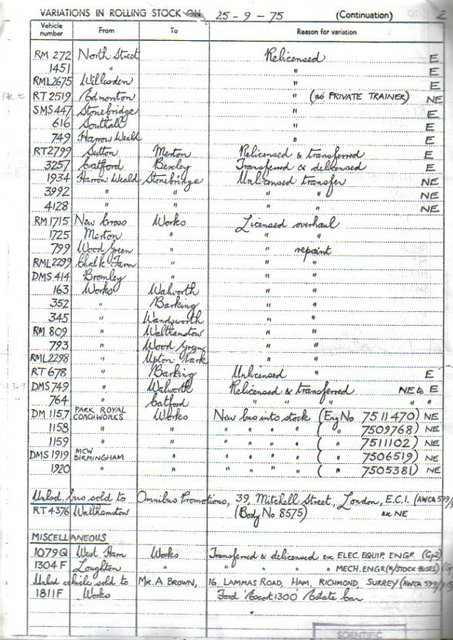 VARIATIONS IN ROLLING STOCK ON 25-9-75 (Continuation) 2
Vehicle number From To Reason for variation
RM 272 North Street Relicensed E
1451 " " E
RML2675 Willesden " E
RT 2519 Edmonton " (as PRIVATE TRAINER) NE
SMS 447 Stonebridge " E
616 Southall " E
749 Harrow Weald " E
RT2799 Sutton Merton Relicensed & transferred E
3257 Catford Bexley Transferred & delicensed E
1934 Harrow Weald Stonebridge Unlicensed transfer NE
3992 " " " " NE
4128 " " " " NE
RM 1715 New Cross Works Licensed overhaul
1725 Merton " " "
799 Wood Green " " repaint
RML 2299 Chalk Farm " " "
DMS 414 Bromley " " "
163 Works Walworth " "
352 " Barking " "
345 " Wandsworth " "
RM 809 " Walthamstow " "
793 " Wood Green " "
RML2298 " Upton Park " "
RT 678 " Barking Unlicensed " E
DMS 749 " Walworth Relicensed & transferred NE to E
764 " Catford " " " " "
DM 1157 PARK ROYAL COACHWORKS Works New bus into stock (Eng No 7511470) NE
1158 " " " " " " ( " " 7509768) NE
1159 " " " " " " ( " " 7511102) NE
DMS 1919 MCW BIRMINGHAM " " " " " ( " " 7506519) NE
1920 " " " " " " ( " " 7505381) NE
Unlcd bus sold to Omnibus Promotions, 39, Mitchell Street, London, E.C.1. (AWCA
RT 4376 Walthamstow (Body No 8575) ex NE
MISCELLANEOUS
1079Q West Ham Works Transferred & delicensed ex ELEC. EQUIP. ENGR.
1304 F Loughton " " " " MECH. ENGR (R/STOCK BUSES)
Unlcd vehicle sold to Mr. A BROWN, 16, LAMMAS ROAD, HAM, RICHMOND, SURREY (AWCA
1811F Works Ford Escort 1300 Estate car
SCIENTIFIC